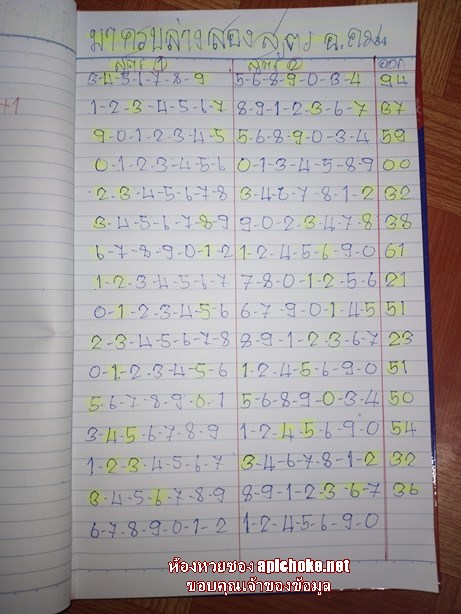 มาครบล่างสองสูตร อ.คม
สูตร 1 สูตร 2 ออก
3-4-5-6-7-8-9 5-6-8-9-0-3-4 94
1-2-3-4-5-6-7 8-9-1-2-3-6-7 37
9-0-1-2-3-4-5 5-6-8-9-0-3-4 59
0-1-2-3-4-5-6 0-1-3-4-5-8-9 00
2-3-4-5-6-7-8 3-4-6-7-8-1-2 32
3-4-5-6-7-8-9 9-0-2-3-4-7-8 38
6-7-8-9-0-1-2 1-2-4-5-6-9-0 61
1-2-3-4-5-6-7 7-8-0-1-2-5-6 21
0-1-2-3-4-5-6 6-7-9-0-1-4-5 51
2-3-4-5-6-7-8 8-9-1-2-3-6-7 23
0-1-2-3-4-5-6 1-2-4-5-6-9-0 51
5-6-7-8-9-0-1 5-6-8-9-0-3-4 50
3-4-5-6-7-8-9 1-2-4-5-6-9-0 54
1-2-3-4-5-6-7 3-4-6-7-8-1-2 32
3-4-5-6-7-8-9 8-9-1-2-3-6-7 36
6-7-8-9-0-1-2 1-2-4-5-6-9-0
+1
ห้องหวยซอง apichoke.net
ขอบคุณเจ้าของข้อมูล